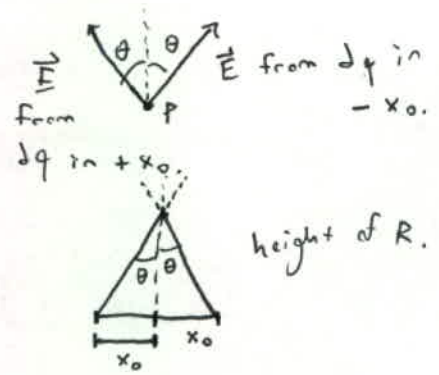 θ θ
E⃗ from dq in
− x₀.
E⃗
from
dq in + x₀.
P
height of R.
θ θ
x₀ x₀